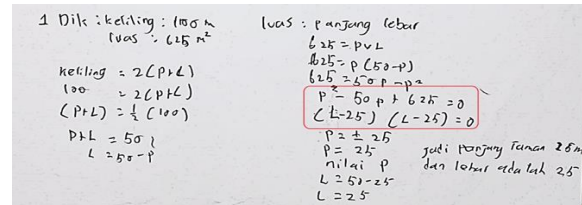 1 Dik : keliling : 100 m
luas : 625 m²
keliling = 2(P+L)
100 = 2(P+L)
(P+L) = ½ (100)
P+L = 50
L = 50-P
luas : panjang lebar
625 = P×L
625 = P (50-P)
625 = 50P - P²
P² - 50P + 625 = 0
(L-25) (L-25) = 0
P = ± 25
P = 25
nilai P
L = 50-25
L = 25
Jadi panjang taman 25 m
dan lebar adalah 25